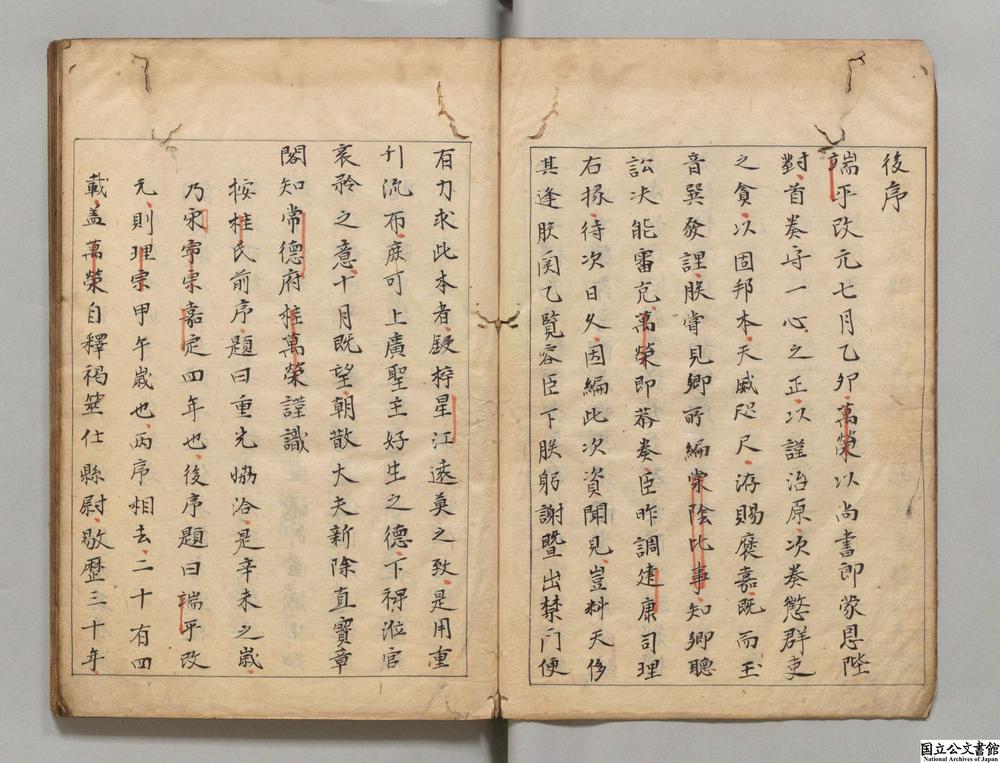 後序
端平改元七月乙卯萬榮以尚書郎蒙恩陛
對首奏守一心之正以謹治原次奏懲群吏
之貪以固邦本天威咫尺洊賜褒嘉既而玉
音巽發謂朕嘗見卿所編棠陰比事知卿聽
訟决能審克萬榮即恭奏臣昨調建康司理
右掾待次日久因編此次資聞見豈料天侈
其逢朕関乙覽容臣下朕躬謝暨出禁门便
有力求此本者鋟梓星江遠莫之致是用重
刊流布庶可上廣聖主好生之德下裨涖官
哀矜之意十月既望朝散大夫新除直寳章
閣知常德府桂萬榮謹識
按桂氏前序題曰重光恊洽是辛未之歳
乃宋寧宗嘉定四年也後序題曰端平改
元則理宗甲午歳也两序相去二十有四
載盖萬榮自釋褐筮仕縣尉敭歴三十年
国立公文書館
National Archives of Japan